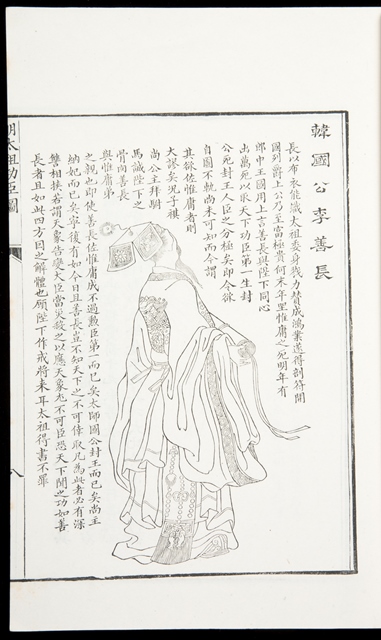 韓國公李善長
長以布衣能識太祖委身戮力贊成鴻業遂得剖符開
國列爵上公乃至富極貴何末年罣惟庸之死明年有
郎中王國用上言善長與陛下同心
出萬死以取天下功臣第一生封
公死封王人臣之分極矣即令欲
自圖不軌尚未可知而今謂
其欲佐惟庸者則
大謬矣況子祺
尚公主拜駙
馬誠陛下之
骨肉善長
與惟庸第
之親也即使善長佐惟庸成不過勲臣第一而已矣太師國公封王而已矣尚主
納妃而已矣寧復有如今日且善長豈不知天下之不可倖取凡為此者必有深
讐相挾若謂天象告變大臣當災殺之以應天象尤不可臣恐天下聞之功如善
長者且如此四方因之解體也願陛下作戒將來耳太祖得書不罪
明太祖功臣圖
八